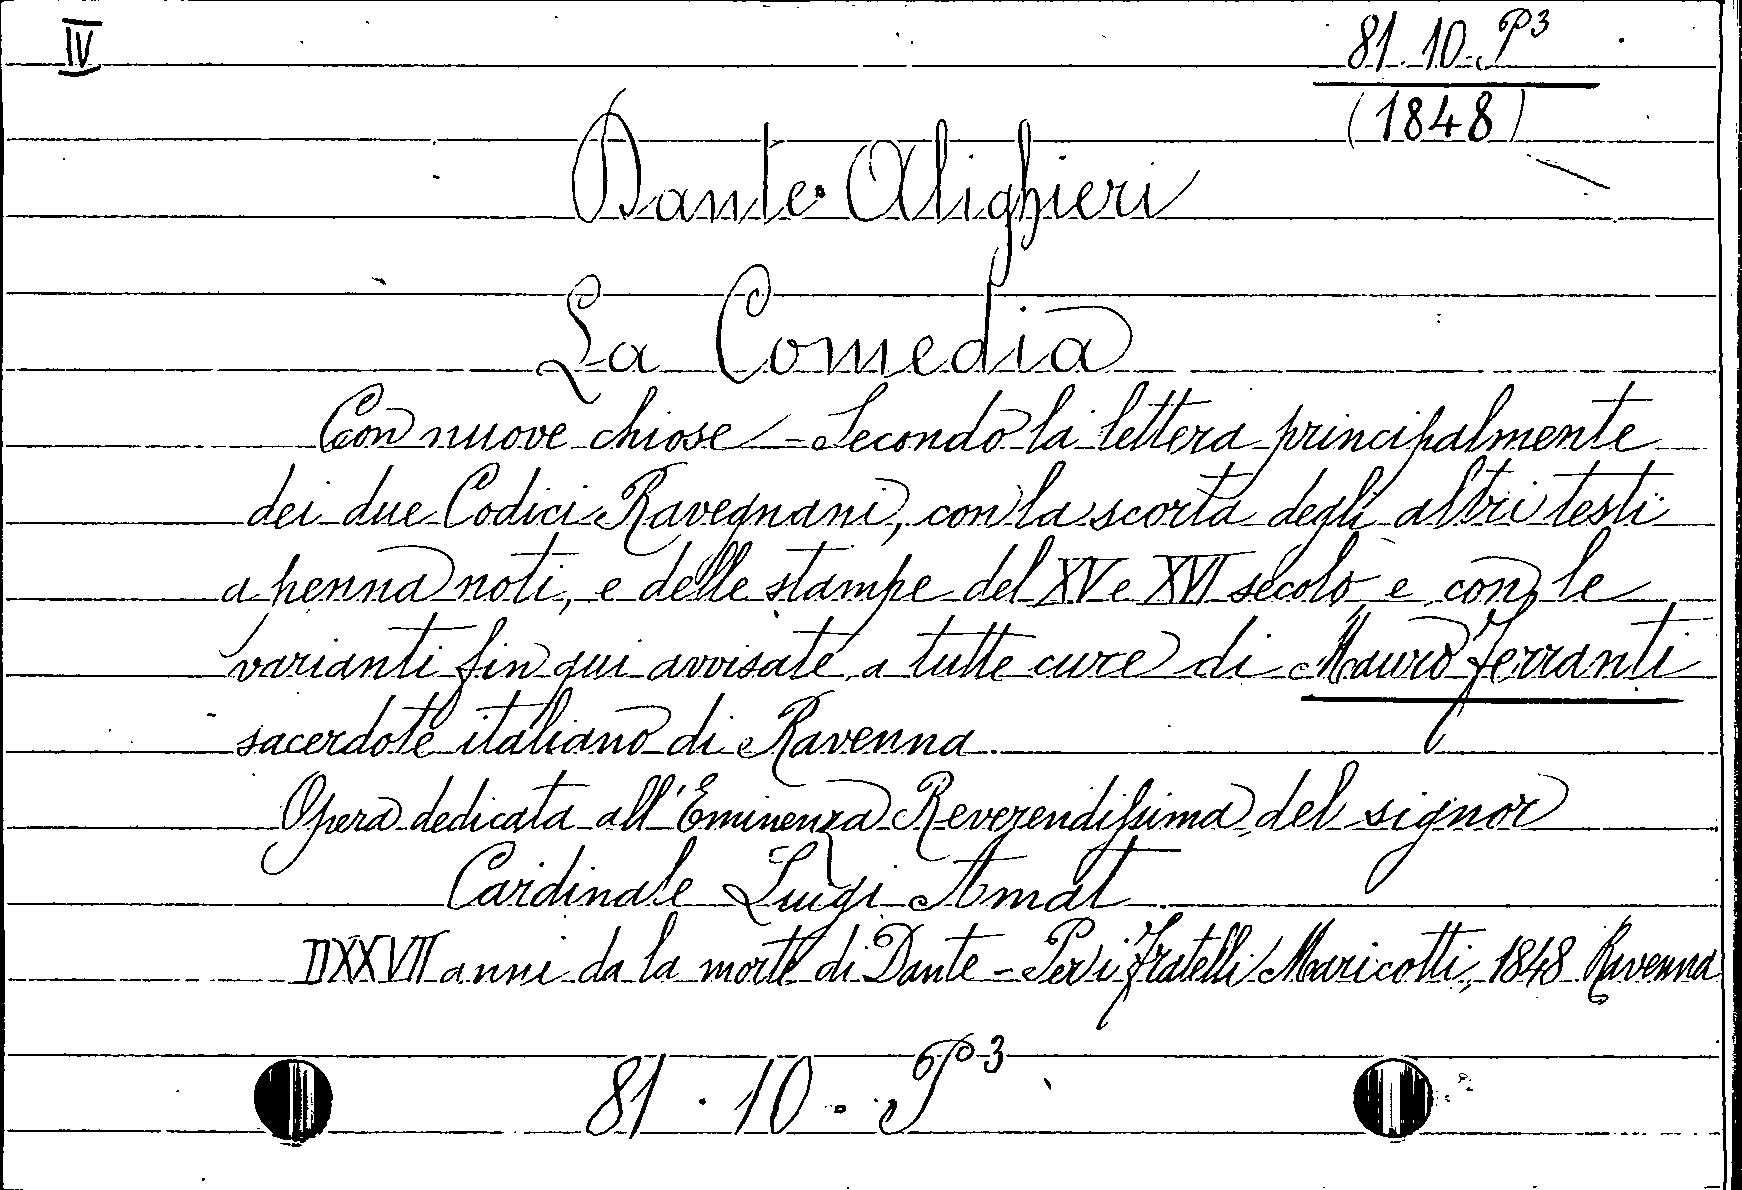 IV
81.10.P³
(1848)
Dante Alighieri
La Comedia
Con nuove chiose - Secondo la lettera principalmente
dei due Codici Ravegnani, con la scorta degli altri testi
a penna noti, e delle stampe del XV e XVI secolo, e con le
varianti fin qui avvisate, a tutte cure di Mauro Ferranti
sacerdote italiano di Ravenna
Opera dedicata all'Eminenza Reverendissima del signor
Cardinale Luigi Amat
DXXVII anni da la morte di Dante - Per i fratelli Maricotti, 1848 Ravenna
81 . 10 . P³